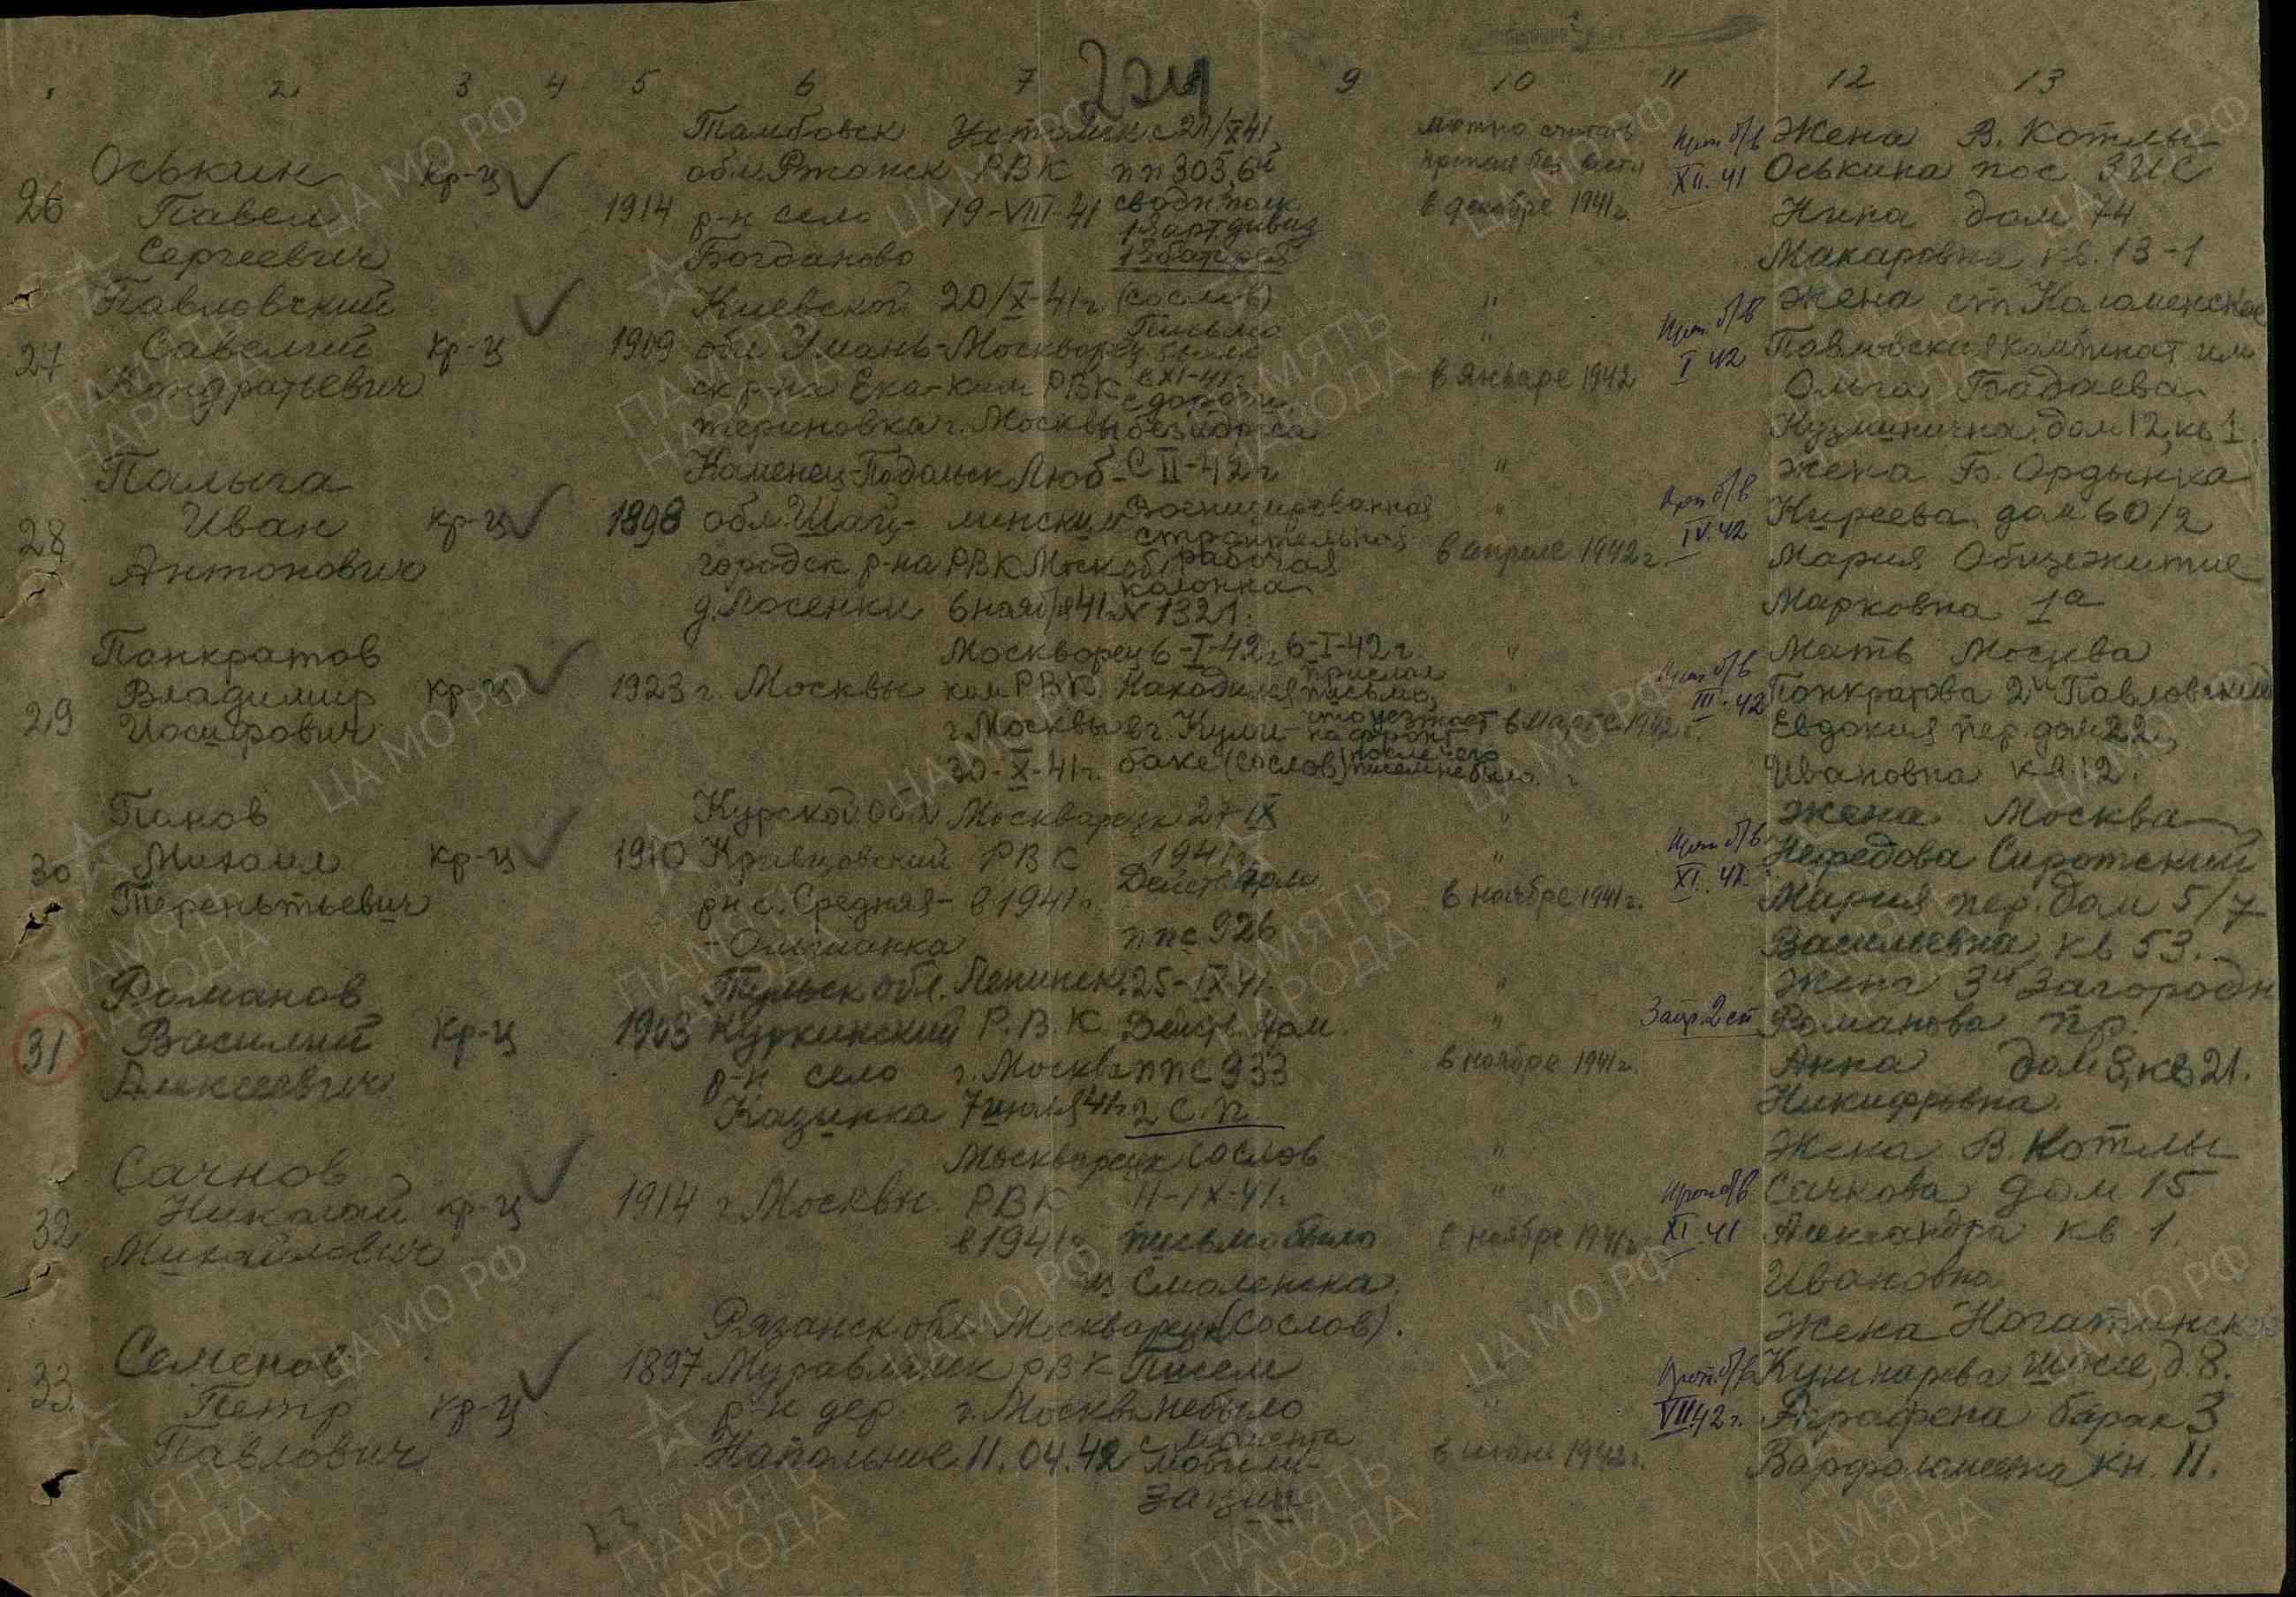 224
1 2 3 4 5 6 7 8 9 10 11 12 13
26
Оськин
Павел
Сергеевич
кр-ц
1914
Тамбовск
обл. Ржанск
р-н село
Богданово
Устамск.
РВК
19-VIII-41
с 21/X 41.
пп 303, 6й
сводн. полк
1й арт. дивиз
1й батарея
можно считать
пропал без вести
в декабре 1941 г.
Проп. б/в
XII. 41
Жена
Оськина
Нина
Макаровна
В. Котлы
пос. ЗИС
дом 74
кв. 13-1
27
Павловский
Савелий
Кондратьевич
кр-ц
1909
Киевской
обл. Умань-
ск р-на Ека-
териновка
20/X-41 г.
Москворец
ким РВК
г. Москвы
(со слов)
Письмо
было
в XI-41 г.
с дороги
без адреса
"
"
в январе 1942
Проп. б/в
I 42
Жена
Павловская
Ольга
Кузминична
ст Коломенское
комбинат им
Бадаева
дом 12, кв 1.
28
Палыга
Иван
Антонович
кр-ц
1898
Каменец-Подольск
обл. Шац-
городск р-на
д. Лосенки
Люб-
линским
РВК Моск обл
6 ноября 41 г.
С II-42 г
Военизированная
строительная
рабочая
колонна
№ 1321.
"
"
в апреле 1942 г.
Проп б/в
IV. 42
Жена
Киреева
Мария
Марковна
Б. Ордынка
дом 60/2
Общежитие
1а
29
Панкратов
Владимир
Иосифович
кр-ц
1923
г. Москвы
Москворец
ким РВК
г. Москвы
30-X-41 г.
6-I-42 г.
Находился
в г. Кули-
баке (со слов)
6-I-42 г
прислал
письмо,
что уезжает
на фронт
после чего
писем не было.
"
"
в марте 1942 г.
Проп. б/в
III. 42
Мать
Панкратова
Евдокия
Ивановна
Москва
2й Павловский
пер. дом 22,
кв. 12.
30
Панов
Михаил
Терентьевич
кр-ц
1910
Курской обл
Кривцовский
рн с. Средняя-
-Ольшанка
Москворецк
РВК
в 1941 г.
27-IX
1941 г.
Действ Арм
ппс 926
"
"
в ноябре 1941 г.
Проп б/в
XI. 41
Жена
Нефедова
Мария
Васильевна
Москва
Сиротский
пер. дом 5/7
кв 53.
31
Романов
Василий
Алексеевич
кр-ц
1903
Тульск обл.
Куркинский
р-н село
Казинка
Ленинск.
Р.В.К.
г. Москва
7 июля 41 г.
25-IX-41.
Действ. Арм.
ппс 933
2 С.П
"
"
в ноябре 1941 г.
Запр. 2 сп
Жена
Романова
Анна
Никифровна.
3й Загородн
пр.
дом 8, кв 21.
32
Сачнов
Николай
Михайлович
кр-ц
1914
г Москвы.
Москворецк
РВК
в 1941 г.
со слов
11-IX-41 г.
письмо было
из Смоленска.
"
"
в ноябре 1941 г.
Проп б/в
XI 41
Жена
Сачкова
Александра
Ивановна
В. Котлы
дом 15
кв 1.
33.
Семенов
Петр
Павлович
кр-ц
1897
Рязанск обл
Муравлянск
р-н дер.
Напольное
Москворецк
РВК
г. Москвы
11.04.42
(со слов).
Писем
не было
с момента
мобили-
зации
"
"
в июне 1942 г.
Проп. б/в
VII 42 г.
Жена
Кушнарева
Аграфена
Варфоломеевна
Ногатинское
шоссе, д. 8.
барак 3
кн. 11.